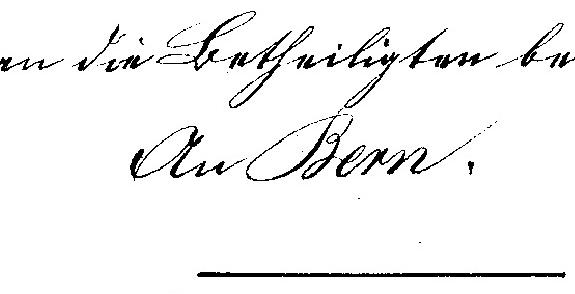 en die Betheiligten be
An Bern.